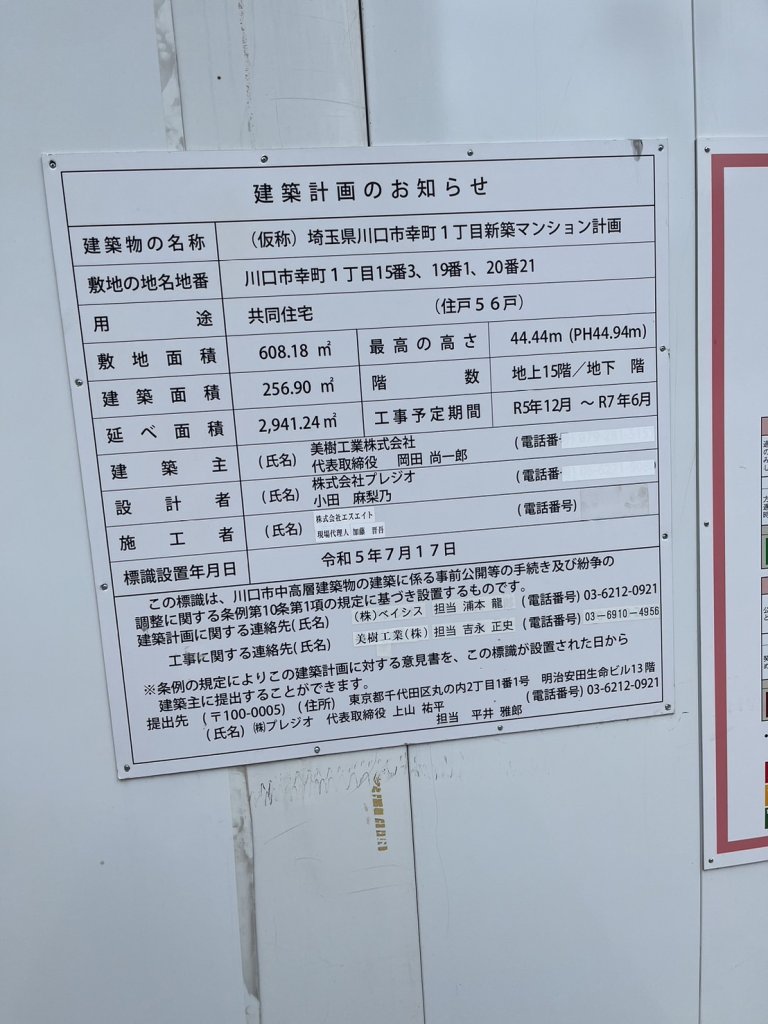 建築計画のお知らせ
建築物の名称 (仮称) 埼玉県川口市幸町1丁目新築マンション計画
敷地の地名地番 川口市幸町1丁目15番3、19番1、20番21
用途 共同住宅 (住戸56戸)
敷地面積 608.18 ㎡ 最高の高さ 44.44m (PH44.94m)
建築面積 256.90 ㎡ 階数 地上15階/地下 階
延べ面積 2,941.24㎡ 工事予定期間 R5年12月 ~R7年6月
建築主 (氏名) 美樹工業株式会社 (電話番
代表取締役 岡田 尚一郎
設計者 (氏名) 株式会社プレジオ (電話番
小田 麻梨乃
施工者 (氏名) 株式会社エスエイト (電話番号)
現場代理人 加藤 晋吾
標識設置年月日 令和5年7月17日
この標識は、川口市中高層建築物の建築に係る事前公開等の手続き及び紛争の
調整に関する条例第10条第1項の規定に基づき設置するものです。
建築計画に関する連絡先(氏名) (株)ベイシス 担当 浦本 龍 (電話番号) 03-6212-0921
工事に関する連絡先(氏名) 美樹工業(株) 担当 吉永 正史 (電話番号) 03-6910-4956
※条例の規定によりこの建築計画に対する意見書を、この標識が設置された日から
建築主に提出することができます。
提出先 (〒100-0005) (住所) 東京都千代田区丸の内2丁目1番1号 明治安田生命ビル13階
(氏名) ㈱プレジオ 代表取締役 上山 祐平 (電話番号) 03-6212-0921
担当 平井 雅郎